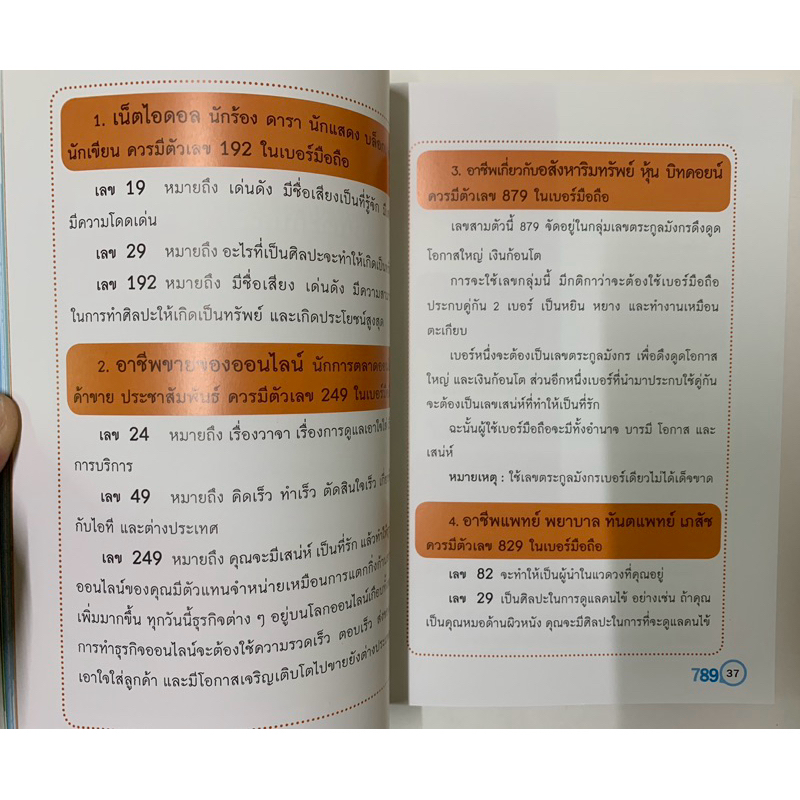 1. เน็ตไอดอล นักร้อง ดารา นักแสดง
นักเขียน ควรมีตัวเลข 192 ในเบอร์มือถือ
เลข 19 หมายถึง เด่นดัง มีชื่อเสียงเป็นที่รู้จัก
มีความโดดเด่น
เลข 29 หมายถึง อะไรที่เป็นศิลปะจะทำให้เกิด
เลข 192 หมายถึง มีชื่อเสียง เด่นดัง
ในการทำศิลปะให้เกิดเป็นทรัพย์ และเกิดประโยชน์สูงสุด
2. อาชีพขายของออนไลน์
ค้าขาย ประชาสัมพันธ์ ควรมีตัวเลข 249
เลข 24 หมายถึง เรื่องวาจา เรื่องการดูแลเอาใจใส่
การบริการ
เลข 49 หมายถึง คิดเร็ว ทำเร็ว ตัดสินใจเร็ว
กับไอที และต่างประเทศ
เลข 249 หมายถึง คุณจะมีเสน่ห์ เป็นที่รัก
ออนไลน์ของคุณมีตัวแทนจำหน่ายเหมือนการแตกกิ่งก้าน
เพิ่มมากขึ้น ทุกวันนี้ธุรกิจต่าง ๆ อยู่บนโลกออนไลน์
การทำธุรกิจออนไลน์จะต้องใช้ความรวดเร็ว ตอบเร็ว
เอาใจใส่ลูกค้า และมีโอกาสเจริญเติบโตไปขายยัง
3. อาชีพเกี่ยวกับอสังหาริมทรัพย์ หุ้น บิทคอยน์
ควรมีตัวเลข 879 ในเบอร์มือถือ
เลขสามตัวนี้ 879 จัดอยู่ในกลุ่มเลขตระกูลมังกรดึงดูด
โอกาสใหญ่ เงินก้อนโต
การจะใช้เลขกลุ่มนี้ มีกติกาว่าจะต้องใช้เบอร์มือถือ
ประกบคู่กัน 2 เบอร์ เป็นหยิน หยาง และทำงานเหมือน
ตะเกียบ
เบอร์หนึ่งจะต้องเป็นเลขตระกูลมังกร เพื่อดึงดูดโอกาส
ใหญ่ และเงินก้อนโต ส่วนอีกหนึ่งเบอร์ที่นำมาประกบใช้คู่กัน
จะต้องเป็นเลขเสน่ห์ที่ทำให้เป็นที่รัก
ฉะนั้นผู้ใช้เบอร์มือถือจะมีทั้งอำนาจ บารมี โอกาส และ
เสน่ห์
หมายเหตุ : ใช้เลขตระกูลมังกรเบอร์เดียวไม่ได้เด็จขาด
4. อาชีพแพทย์ พยาบาล ทันตแพทย์ เภสัช
ควรมีตัวเลข 829 ในเบอร์มือถือ
เลข 82 จะทำให้เป็นผู้นำในแวดวงที่คุณอยู่
เลข 29 เป็นศิลปะในการดูแลคนไข้ อย่างเช่น ถ้าคุณ
เป็นคุณหมอด้านผิวหนัง คุณจะมีศิลปะในการที่จะดูแลคนไข้
789 37